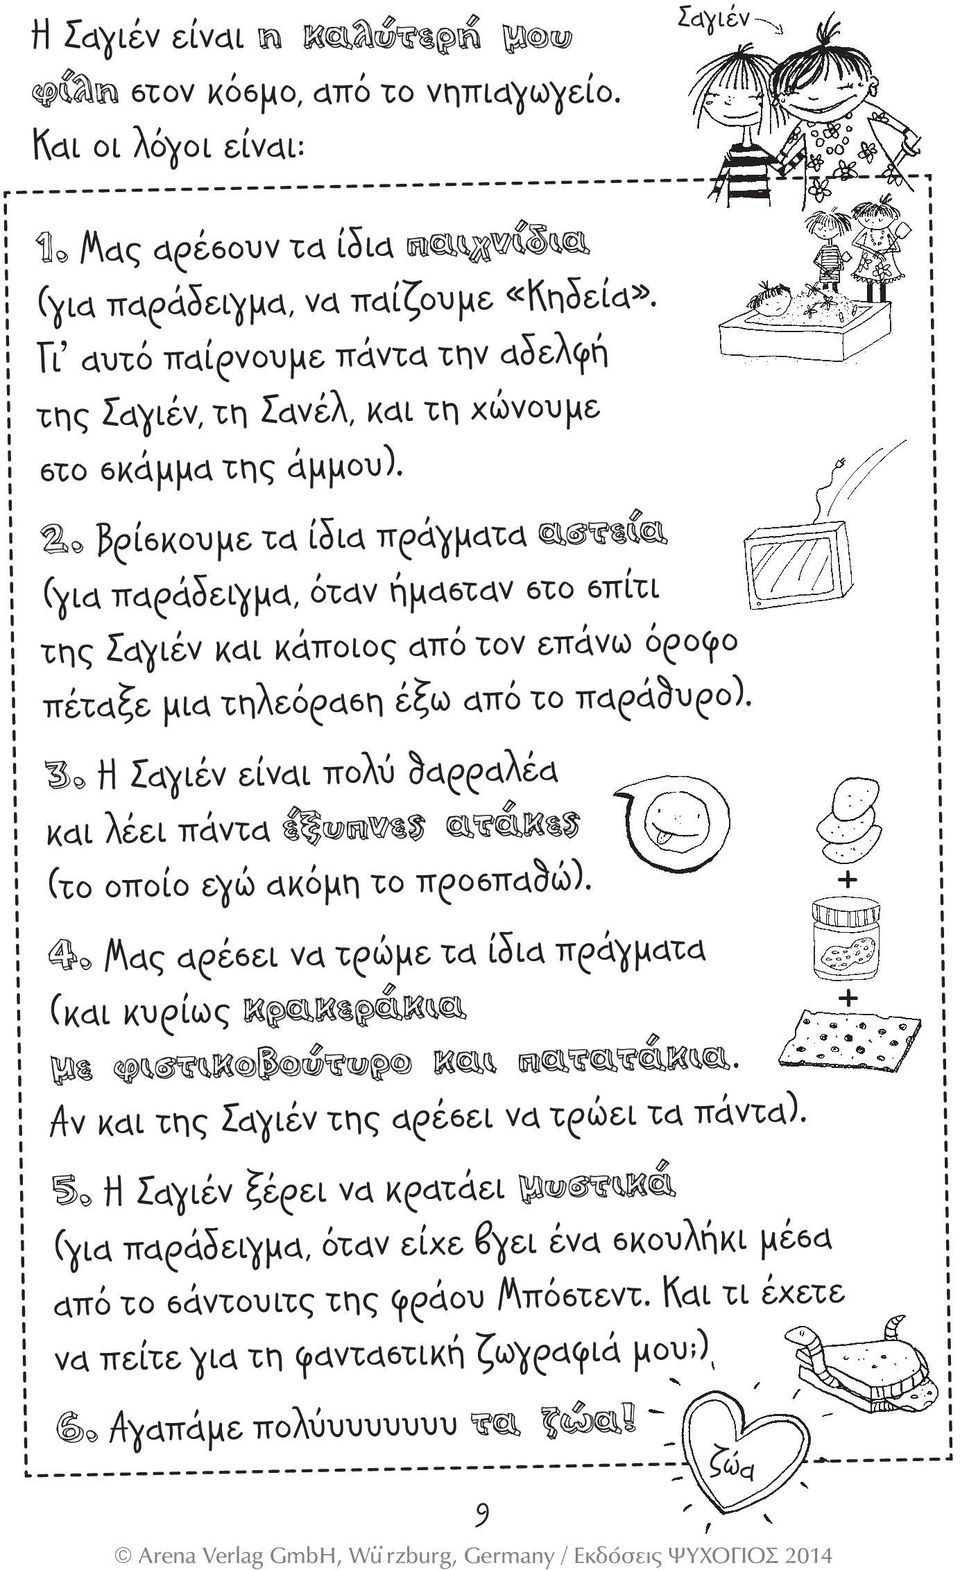 Η Σαγιέν είναι η καλύτερή μου
Σαγιέν
φίλη στον κόσμο, από το νηπιαγωγείο.
Και οι λόγοι είναι:
1. Μας αρέσουν τα ίδια παιχνίδια
(για παράδειγμα, να παίζουμε «Κηδεία».
Γι’ αυτό παίρνουμε πάντα την αδελφή
της Σαγιέν, τη Σανέλ, και τη χώνουμε
στο σκάμμα της άμμου).
2. Βρίσκουμε τα ίδια πράγματα αστεία
(για παράδειγμα, όταν ήμασταν στο σπίτι
της Σαγιέν και κάποιος από τον επάνω όροφο
πέταξε μια τηλεόραση έξω από το παράθυρο).
3. Η Σαγιέν είναι πολύ θαρραλέα
και λέει πάντα έξυπνες ατάκες
(το οποίο εγώ ακόμη το προσπαθώ).
+
4. Μας αρέσει να τρώμε τα ίδια πράγματα
(και κυρίως κρακεράκια
+
με φιστικοβούτυρο και πατατάκια.
Αν και της Σαγιέν της αρέσει να τρώει τα πάντα).
5. Η Σαγιέν ξέρει να κρατάει μυστικά
(για παράδειγμα, όταν είχε βγει ένα σκουλήκι μέσα
από το σάντουιτς της φράου Μπόστεντ. Και τι έχετε
να πείτε για τη φανταστική ζωγραφιά μου;)
6. Αγαπάμε πολύυυυυυυυ τα ζώα!
ζώα
9
© Arena Verlag GmbH, Würzburg, Germany / Εκδόσεις ΨΥΧΟΓΙΟΣ 2014